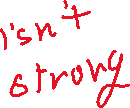 isn't
strong